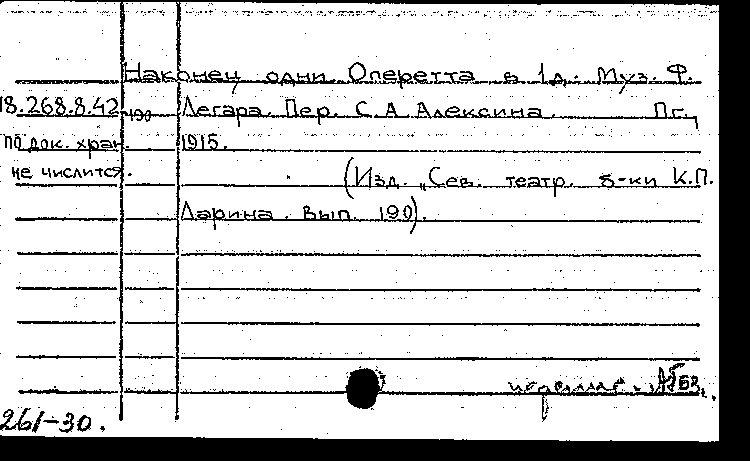 Наконец одни. Оперетта в 1д. Муз. Ф.
18.268.8.42-190 Легара. Пер. С.А Алексина. Пг.,
по док. хран. 1915.
не числится. (Изд. „Сев. театр. б-ки К.П.
Ларина. Вып. 190).
261-30.